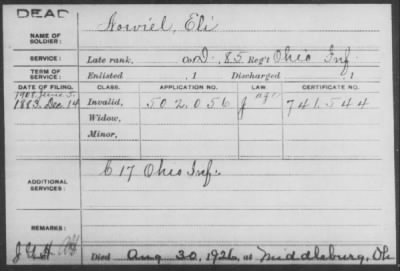 DEAD
NAME OF SOLDIER: Howiel, Eli
SERVICE: Late rank, Co. D. 85 Reg't Ohio Inf
TERM OF SERVICE: Enlisted , 1 Discharged , 1
DATE OF FILING. CLASS. APPLICATION NO. LAW. CERTIFICATE NO.
1908 June 5.
1883 Dec 14 Invalid, 502.056 J 741.544
Widow,
Minor,
ADDITIONAL SERVICES: C 17 Ohio Inf.
REMARKS:
Died Aug 30, 1926, at Middlsburg, Oh